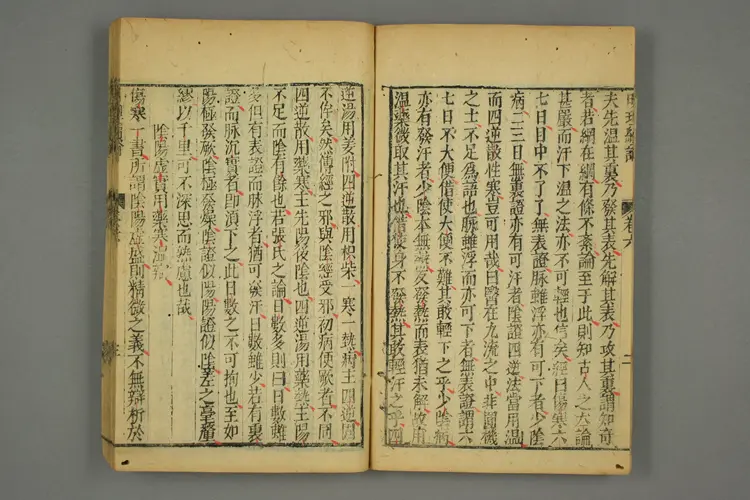 夫先温其裏乃發其表先解其表乃攻其裏謂知竒
者若網在綱有條不紊論至于此則知古人之大論
甚嚴而汗下温之法亦不可輕也信矣經曰傷寒六
七日目中不了了無表證脉雖浮亦有可下者少陰
病二三日無裏證亦有可汗者陰證四逆法當用温
而四逆散性寒豈可用哉曰醫在九流之中非圓機
之士不足爲語也脉雖浮而亦可下者無表證謂六
七日不大便借使大便不難其敢輕下之乎少陰病
亦有發汗者少陰本無熱反發熱而表猶未解故用
温藥微取其汗也借使身不發熱其敢輕汗之乎四
逆湯用姜附四逆散用枳柴一寒一熱病王四逆固
不侔矣然傳經之邪與陰經受邪初病便厥者不同
四逆散用藥寒主先陽後陰也四逆湯用藥熱主陽
不足而陰有餘也若張氏之論日數多則曰日數雖
多但有表證而脉浮者猶可發汗日數雖少若有裏
證而脉沉實者即須下之此日數之不可拘也至如
陽極發厥陰極發燥陰證似陽陽證似陰差之毫釐
繆以千里可不深思而熟慮也哉
陰陽虚實用藥寒温辨
傷寒一書所謂陰陽虚盛則精微之義不無辯析於
卷六
二
三